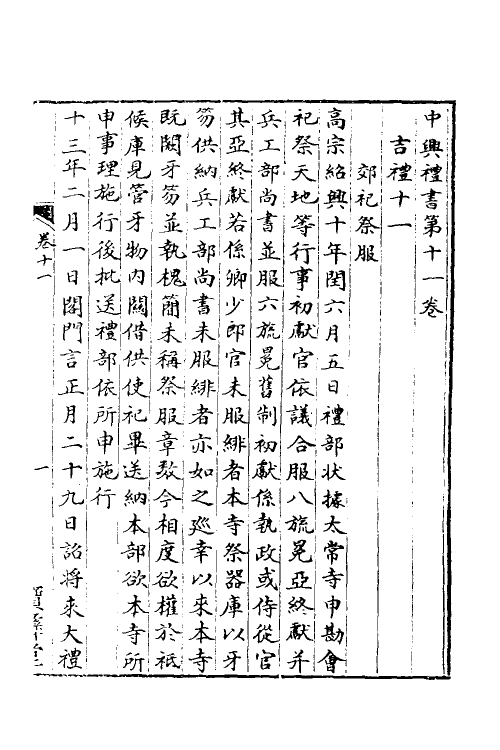 中興禮書第十一卷
吉禮十一
郊祀祭服
高宗紹興十年閏六月五日禮部狀據太常寺申勘會
祀祭天地等行事初獻官依議合服八旒冕亞終獻并
兵工部尚書並服六旒冕舊制初獻係執政或侍從官
其亞終獻若係卿少郎官未服緋者本寺祭器庫以牙
笏供納兵工部尚書未服緋者亦如之廵幸以來本寺
既闕牙笏並執槐簡未稱祭服章數今相度欲權於祗
候庫見管牙物内關借供使祀畢送納本部欲本寺所
申事理施行後批送禮部依所申施行
十三年二月一日閤門言正月二十九日詔將來大禮
卷十一
一